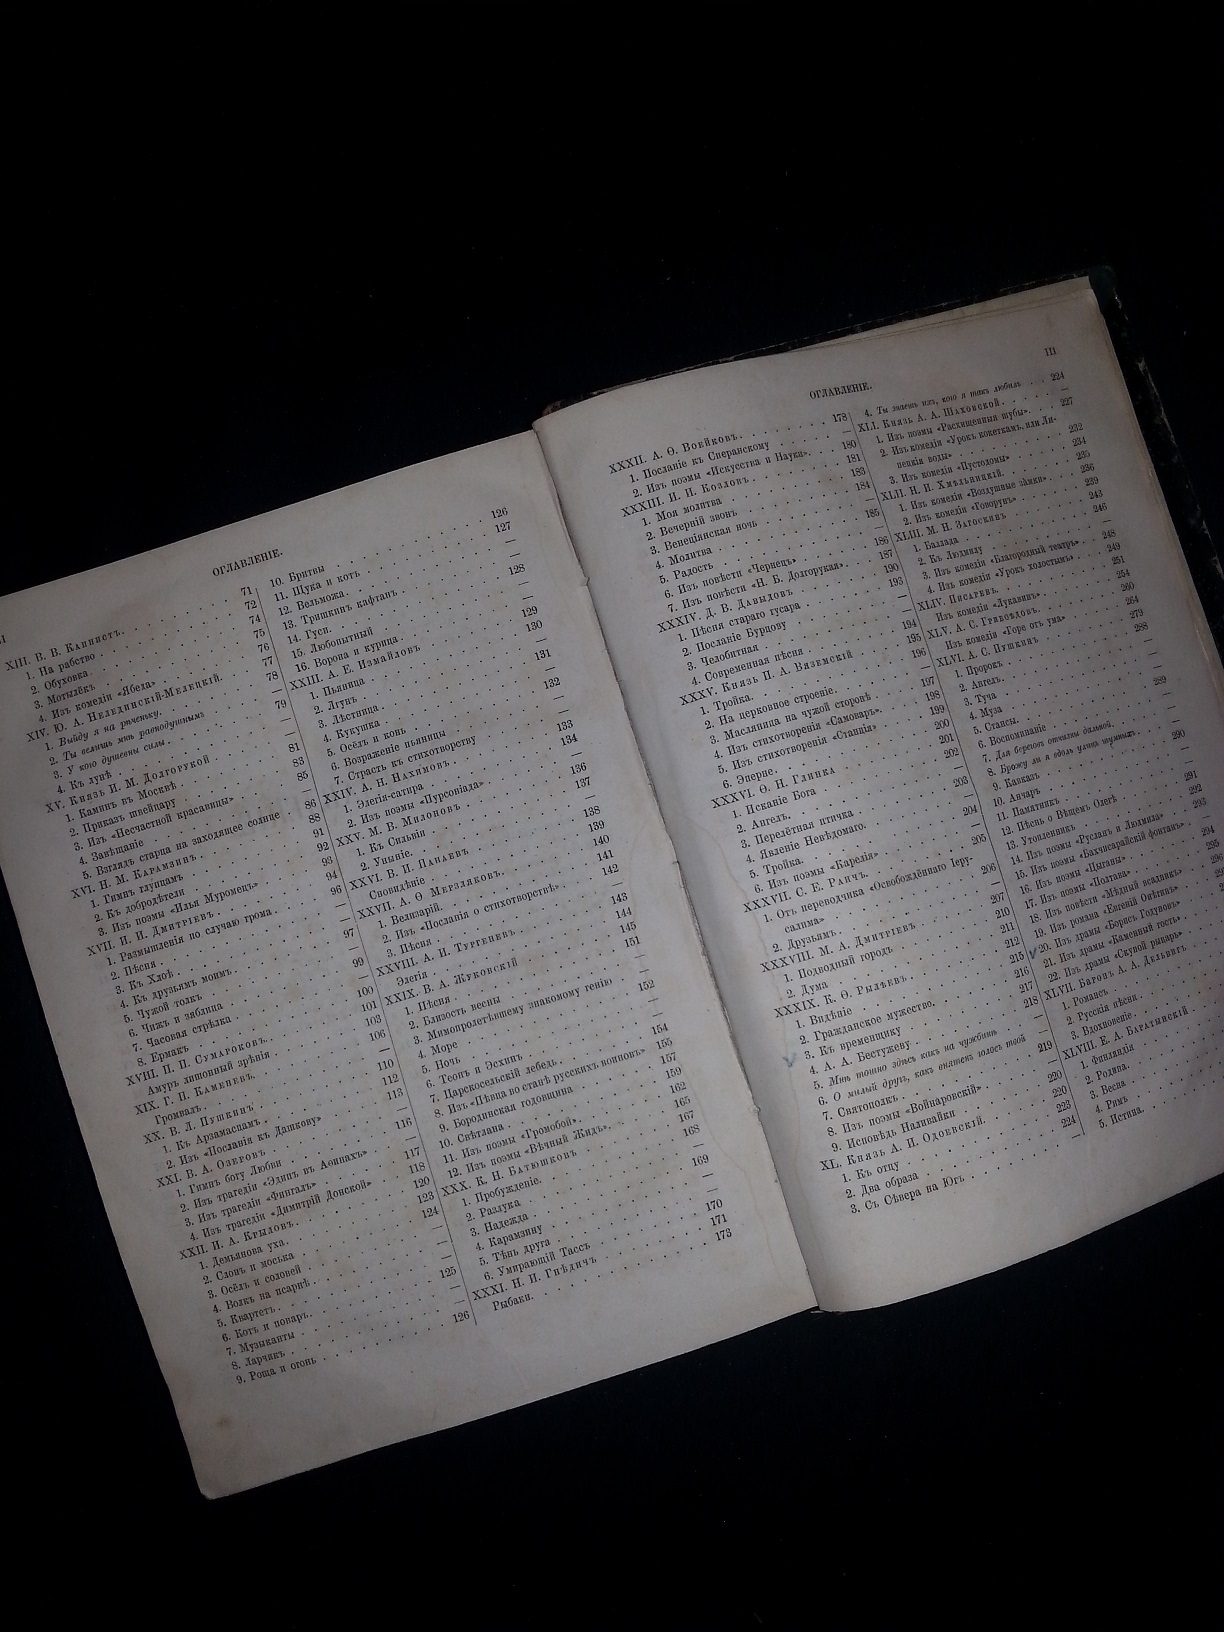 ОГЛАВЛЕНІЕ.
XIII. В. В. Капнистъ. 71
1. На рабство 72
2. Обуховка. 74
3. Мотылёкъ 75
4. Изъ комедіи «Ябеда» 76
XIV. Ю. А. Нелединскій-Мелецкій. 77
1. Выйду я на рѣченьку. 78
2. Ты велишь мнѣ равнодушнымъ —
3. У кого душевны силы. 79
4. Къ лунѣ —
XV. Князь И. М. Долгорукой
1. Каминъ въ Москвѣ.
2. Приказъ швейцару
3. Изъ «Несчастной красавицы»
4. Завѣщаніе
5. Взглядъ старца на заходящее солнце
XVI. Н. М. Карамзинъ
1. Гимнъ глупцамъ
2. Къ добродѣтели
3. Изъ поэмы «Илья Муромецъ»
XVII. И. И. Дмитріевъ
1. Размышленія по случаю грома.
2. Пѣсня
3. Къ Хлоѣ
4. Къ друзьямъ моимъ
5. Чужой толкъ
6. Чижъ и зяблица
7. Часовая стрѣлка
8. Ермакъ
XVIII. П. П. Сумароковъ.
Амуръ лишонный зрѣнія
XIX. Г. П. Каменевъ.
Громвалъ.
XX. В. Л. Пушкинъ
1. Къ Арзамасцамъ
2. Изъ «Посланія къ Дашкову»
XXI. В. А. Озеровъ.
1. Гимнъ богу Любви
2. Изъ трагедіи «Эдипъ въ Аѳинахъ»
3. Изъ трагедіи «Фингалъ»
4. Изъ трагедіи «Димитрій Донской»
XXII. И. А. Крыловъ.
1. Демьянова уха.
2. Слонъ и моська
3. Осёлъ и соловей
4. Волкъ на псарнѣ.
5. Квартетъ.
6. Котъ и поваръ.
7. Музыканты
8. Ларчикъ
9. Роща и огонь 126
10. Бритвы 126
11. Щука и котъ 127
12. Вельможа. —
13. Тришкинъ кафтанъ —
14. Гуси. 128
15. Любопытный —
16. Ворона и курица. 129
XXIII. А. Е. Измайловъ 130
1. Пьяница —
2. Лгунъ 131
3. Лѣстница —
4. Кукушка 132
5. Осёлъ и конь —
6. Возраженіе пьяницы 133
7. Страсть къ стихотворству 134
XXIV. А. Н. Нахимовъ.
1. Элегія-сатира
2. Изъ поэмы «Пурсоніада»
XXV. М. В. Милоновъ
1. Къ Сильвіи
2. Уныніе.
XXVI. В. И. Панаевъ
Сновидѣніе
XXVII. А. Ѳ. Мерзляковъ.
1. Велизарій.
2. Изъ «Посланія о стихотворствѣ»
3. Пѣсня
XXVIII. А. И. Тургеневъ
Элегія
XXIX. В. А. Жуковскій
1. Пѣсня
2. Близость весны
3. Мимопролетѣвшему знакомому генію
4. Море
5. Ночь
6. Теонъ и Эсхинъ
7. Царскосельскій лебедь.
8. Изъ «Пѣвца во станѣ русскихъ воиновъ»
9. Бородинская годовщина
10. Свѣтлана
11. Изъ поэмы «Громобой».
12. Изъ поэмы «Вѣчный Жидъ».
XXX. К. Н. Батюшковъ
1. Пробужденіе.
2. Разлука
3. Надежда
4. Карамзину
5. Тѣнь друга 170
6. Умирающій Тассъ 171
XXXI. Н. И. Гнѣдичъ 173
Рыбаки.
ОГЛАВЛЕНІЕ.
III
XXXII. А. Ѳ. Воейковъ. 178
1. Посланіе къ Сперанскому —
2. Изъ поэмы «Искусства и Науки». 180
XXXIII. И. И. Козловъ. 181
1. Моя молитва 183
2. Вечерній звонъ 184
3. Венеціянская ночь —
4. Молитва 185
5. Радость —
6. Изъ повѣсти «Чернецъ» 186
7. Изъ повѣсти «Н. Б. Долгорукая». 187
XXXIV. Д. В. Давыдовъ 190
1. Пѣсня стараго гусара 193
2. Посланіе Бурцову —
3. Челобитная
4. Современная пѣсня
XXXV. Князь П. А. Вяземскій
1. Тройка.
2. На церковное строеніе.
3. Масляница на чужой сторонѣ
4. Изъ стихотворенія «Самоваръ».
5. Изъ стихотворенія «Станція»
6. Эперне.
XXXVI. Ѳ. Н. Глинка
1. Исканіе Бога
2. Ангелъ.
3. Перелётная птичка
4. Явленіе Невѣдомаго.
5. Тройка.
6. Изъ «Карелія»
XXXVII. С. Е. Раичъ.
1. Отъ переводчика «Освобождённаго Іеру-
салима»
2. Друзьямъ.
XXXVIII. М. А. Дмитріевъ
1. Подводный городъ
2. Дума
XXXIX. К. Ѳ. Рылѣевъ
1. Видѣніе
2. Гражданское мужество.
3. Къ временщику
4. А. А. Бестужеву
5. Мнѣ тошно здѣсь какъ на чужбинѣ
6. О милый другъ, какъ внятенъ голосъ твой
7. Святополкъ
8. Изъ поэмы «Войнаровскій»
9. Исповѣдь Наливайки
XL. Князь А. И. Одоевскій.
1. Къ отцу
2. Два образа
3. Съ Сѣвера на Югъ
4. Ты знаешь ихъ, кого я такъ любилъ 224
XLI. Князь А. А. Шаховской. —
1. Изъ поэмы «Расхищенныя шубы». 227
2. Изъ комедіи «Урокъ кокеткамъ, или Ли-
пецкія воды» 232
3. Изъ комедіи «Пустодомы» 234
XLII. Н. И. Хмѣльницкій. 235
1. Изъ комедіи «Воздушные зáмки». 236
2. Изъ комедіи «Говорунъ» 239
XLIII. М. Н. Загоскинъ 243
1. Баллада 246
2. Къ Людмилу
3. Изъ комедіи «Благородный театръ».
4. Изъ комедіи «Урокъ холостымъ»
XLIV. Писаревъ.
Изъ комедіи «Лукавинъ»
XLV. А. С. Грибоѣдовъ.
Изъ комедіи «Горе отъ ума»
XLVI. А. С. Пушкинъ
1. Пророкъ
2. Ангелъ
3. Туча
4. Муза
5. Стансы.
6. Воспоминаніе
7. Для береговъ отчизны дальной.
8. Брожу ли я вдоль улицъ шумныхъ
9. Кавказъ
10. Анчаръ
11. Памятникъ
12. Пѣснь о Вѣщемъ Олегѣ
13. Утопленникъ
14. Изъ поэмы «Русланъ и Людмила»
15. Изъ поэмы «Бахчисарайскій фонтанъ»
16. Изъ поэмы «Цыганы»
17. Изъ поэмы «Полтава»
18. Изъ повѣсти «Мѣдный всадникъ»
19. Изъ романа «Евгеній Онѣгинъ»
20. Изъ драмы «Борисъ Годуновъ»
21. Изъ драмы «Каменный гость»
22. Изъ драмы «Скупой рыцарь»
XLVII. Баронъ А. А. Дельвигъ
1. Романсъ
2. Русскія пѣсни
3. Вдохновеніе
XLVIII. Е. А. Баратынскій
1. Финляндія
2. Родина.
3. Весна
4. Римъ
5. Истина.